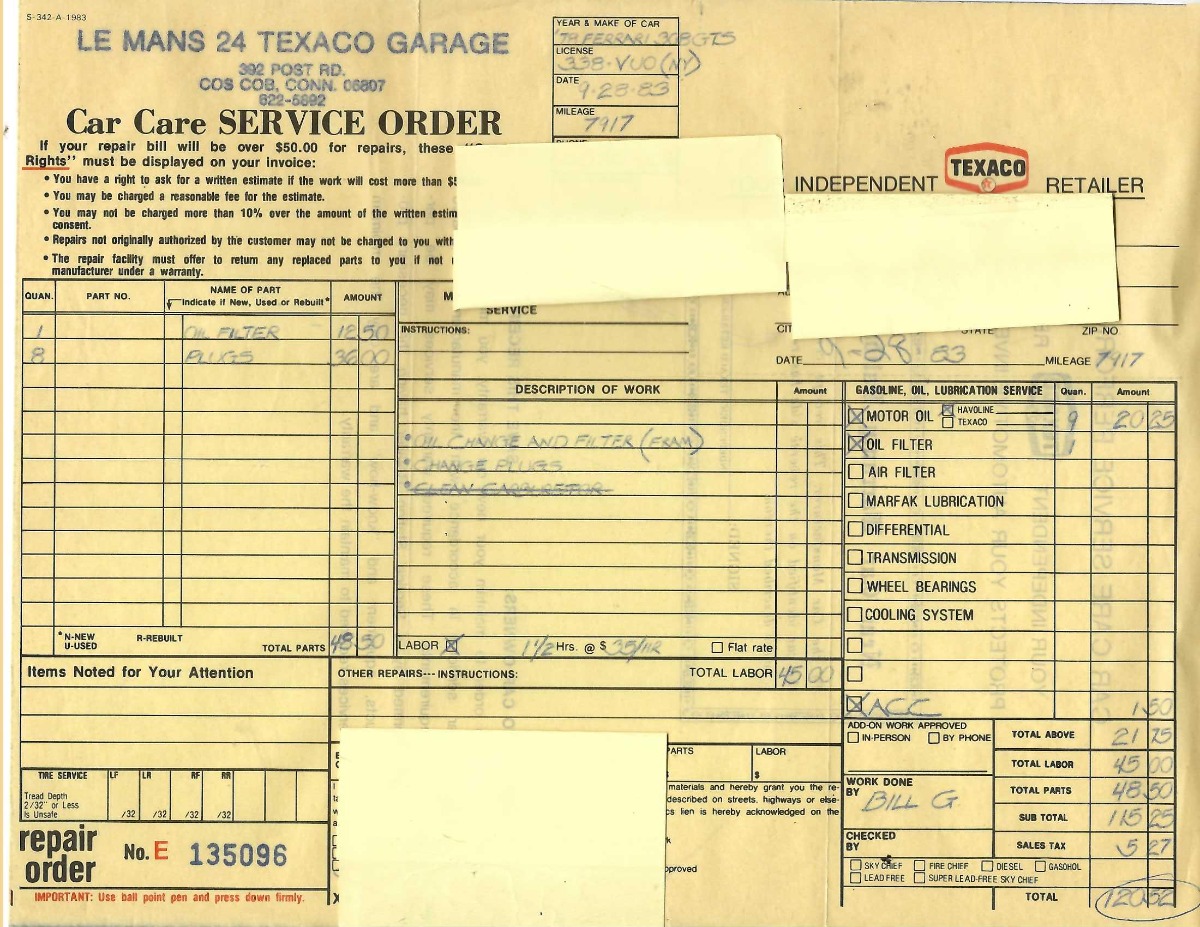 S-342-A-1983
LE MANS 24 TEXACO GARAGE
392 POST RD.
COS COB, CONN. 06807
622-5892
Car Care SERVICE ORDER
If your repair bill will be over $50.00 for repairs, these
Rights" must be displayed on your invoice:
• You have a right to ask for a written estimate if the work will cost more than
• You may be charged a reasonable fee for the estimate.
• You may not be charged more than 10% over the amount of the written
consent.
• Repairs not originally authorized by the customer may not be charged to you
• The repair facility must offer to return any replaced parts to you if not
manufacturer under a warranty.
YEAR & MAKE OF CAR
'78 FERRARI 308GTS
LICENSE
338-VUO (NY)
DATE
9-28-83
MILEAGE
7917
INDEPENDENT TEXACO RETAILER
STATE ZIP NO
DATE 9-28-83 MILEAGE 7917
QUAN. PART NO. NAME OF PART AMOUNT
Indicate if New, Used or Rebuilt*
1 OIL FILTER 12 50
8 PLUGS 36 00
*N-NEW R-REBUILT
U-USED
TOTAL PARTS 48 50
SERVICE
INSTRUCTIONS:
DESCRIPTION OF WORK Amount
• OIL CHANGE AND FILTER (FRAM)
• CHANGE PLUGS
• CLEAN CARBURETOR
LABOR 1 1/2 Hrs. @ $ 35/HR Flat rate
OTHER REPAIRS---INSTRUCTIONS: TOTAL LABOR 45 00
GASOLINE, OIL, LUBRICATION SERVICE Quan. Amount
MOTOR OIL HAVOLINE TEXACO 9 20 25
OIL FILTER 1
AIR FILTER
MARFAK LUBRICATION
DIFFERENTIAL
TRANSMISSION
WHEEL BEARINGS
COOLING SYSTEM
ACC 1 50
ADD-ON WORK APPROVED
IN-PERSON BY PHONE
WORK DONE
BY BILL G
CHECKED
BY
TOTAL ABOVE 21 75
TOTAL LABOR 45 00
TOTAL PARTS 48 50
SUB TOTAL 115 25
SALES TAX 5 27
SKY CHIEF FIRE CHIEF DIESEL GASOHOL
LEAD FREE SUPER LEAD-FREE SKY CHIEF
TOTAL 120 52
Items Noted for Your Attention
TIRE SERVICE LF LR RF RR
Tread Depth
2/32" or Less
Is Unsafe /32 /32 /32 /32
repair
order
No. E 135096
IMPORTANT: Use ball point pen and press down firmly.
PARTS LABOR
$
materials and hereby grant you the re-
described on streets, highways or else-
lien is hereby acknowledged on the
X